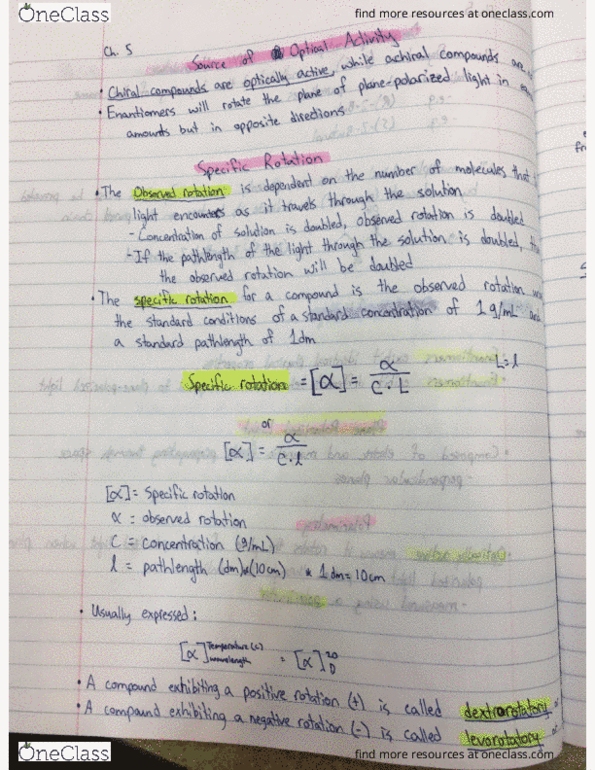 OneClass
find more resources at oneclass.com
Ch. 5
Source of Optical Activity
• Chiral compounds are optically active, while achiral compounds are
• Enantiomers will rotate the plane of plane-polarized light in
amounts but in opposite directions
Specific Rotation
• The Observed rotation is dependent on the number of molecules that
light encounters as it travels through the solution
- Concentration of solution is doubled, observed rotation is doubled
- If the pathlength of the light through the solution is doubled,
the observed rotation will be doubled
• The specific rotation for a compound is the observed rotation
the standard conditions of a standard concentration of 1 g/mL
a standard pathlength of 1dm
Specific rotation = [α] = α / C · L L=l
or
[α] = α / C · l
[α] = Specific rotation
α = observed rotation
C = concentration (g/mL)
l = pathlength (dm) (10cm) * 1dm = 10cm
• Usually expressed:
[α] Temperature (c) wavelength = [α] 20 D
• A compound exhibiting a positive rotation (+) is called dextrorotatory
• A compound exhibiting a negative rotation (-) is called levorotatory
OneClass
find more resources at oneclass.com